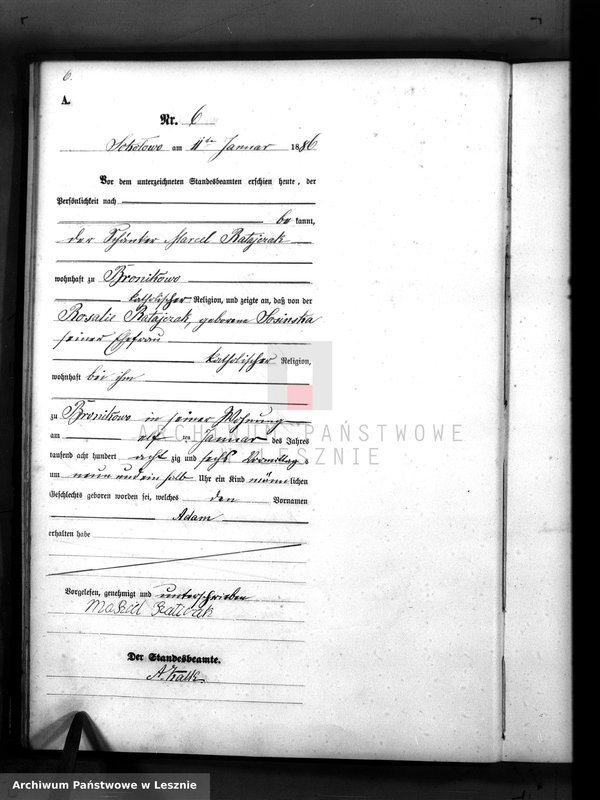 6.
A.
Nr. 6
Sokolowo am 11ten Januar 1886
Vor dem unterzeichneten Standesbeamten erschien heute, der
Persönlichkeit nach
bekannt,
der Marcel Ratajczak
wohnhaft zu Bronikowo
katholischer Religion, und zeigte an, daß von der
Rosalie Ratajczak, geborene Sosinska
seiner Ehefrau
katholischer Religion,
wohnhaft bei ihm
zu Bronikowo in seiner Wohnung
am elf ten Januar des Jahres
tausend acht hundert acht zig und sechs Vormittags
um neun und ein halb Uhr ein Kind männlichen
Geschlechts geboren worden sei, welches den Vornamen
Adam
erhalten habe
Vorgelesen, genehmigt und unterschrieben
Der Standesbeamte.
ARCHIWUM PAŃSTWOWE
W LESZNIE
Archiwum Państwowe w Lesznie